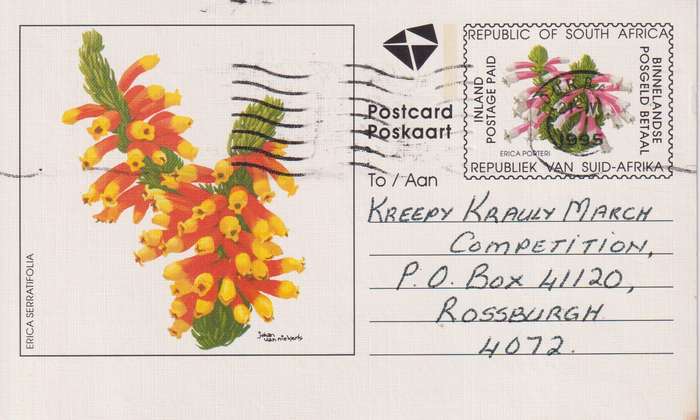 REPUBLIC OF SOUTH AFRICA
INLAND
POSTAGE PAID
BINNELANDSE
POSGELD BETAAL
1995
ERICA PORTERI
REPUBLIEK VAN SUID-AFRIKA
Postcard
Poskaart
To / Aan
KREEPY KRAULY MARCH
COMPETITION,
P.O. BOX 41120,
ROSSBURGH
4072.
ERICA SERRATIFOLIA
johan
van niekerk